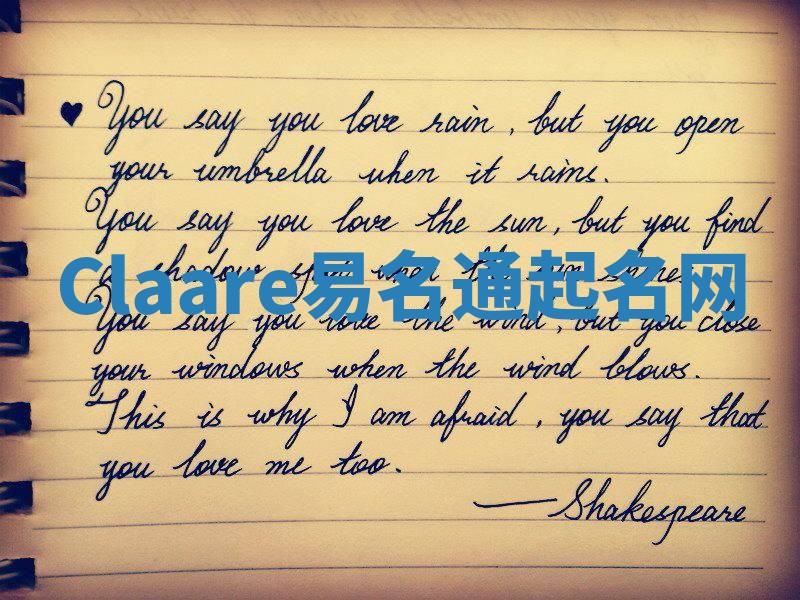 ♥ You say you love rain, but you open
your umbrella when it rains.
You say you love the sun, but you find
a shadow spot when the sun shines.
Claare易名通起名网
You say you love the wind, but you close
your windows when the wind blows.
This is why I am afraid, you say that
you love me too.
—Shakespeare